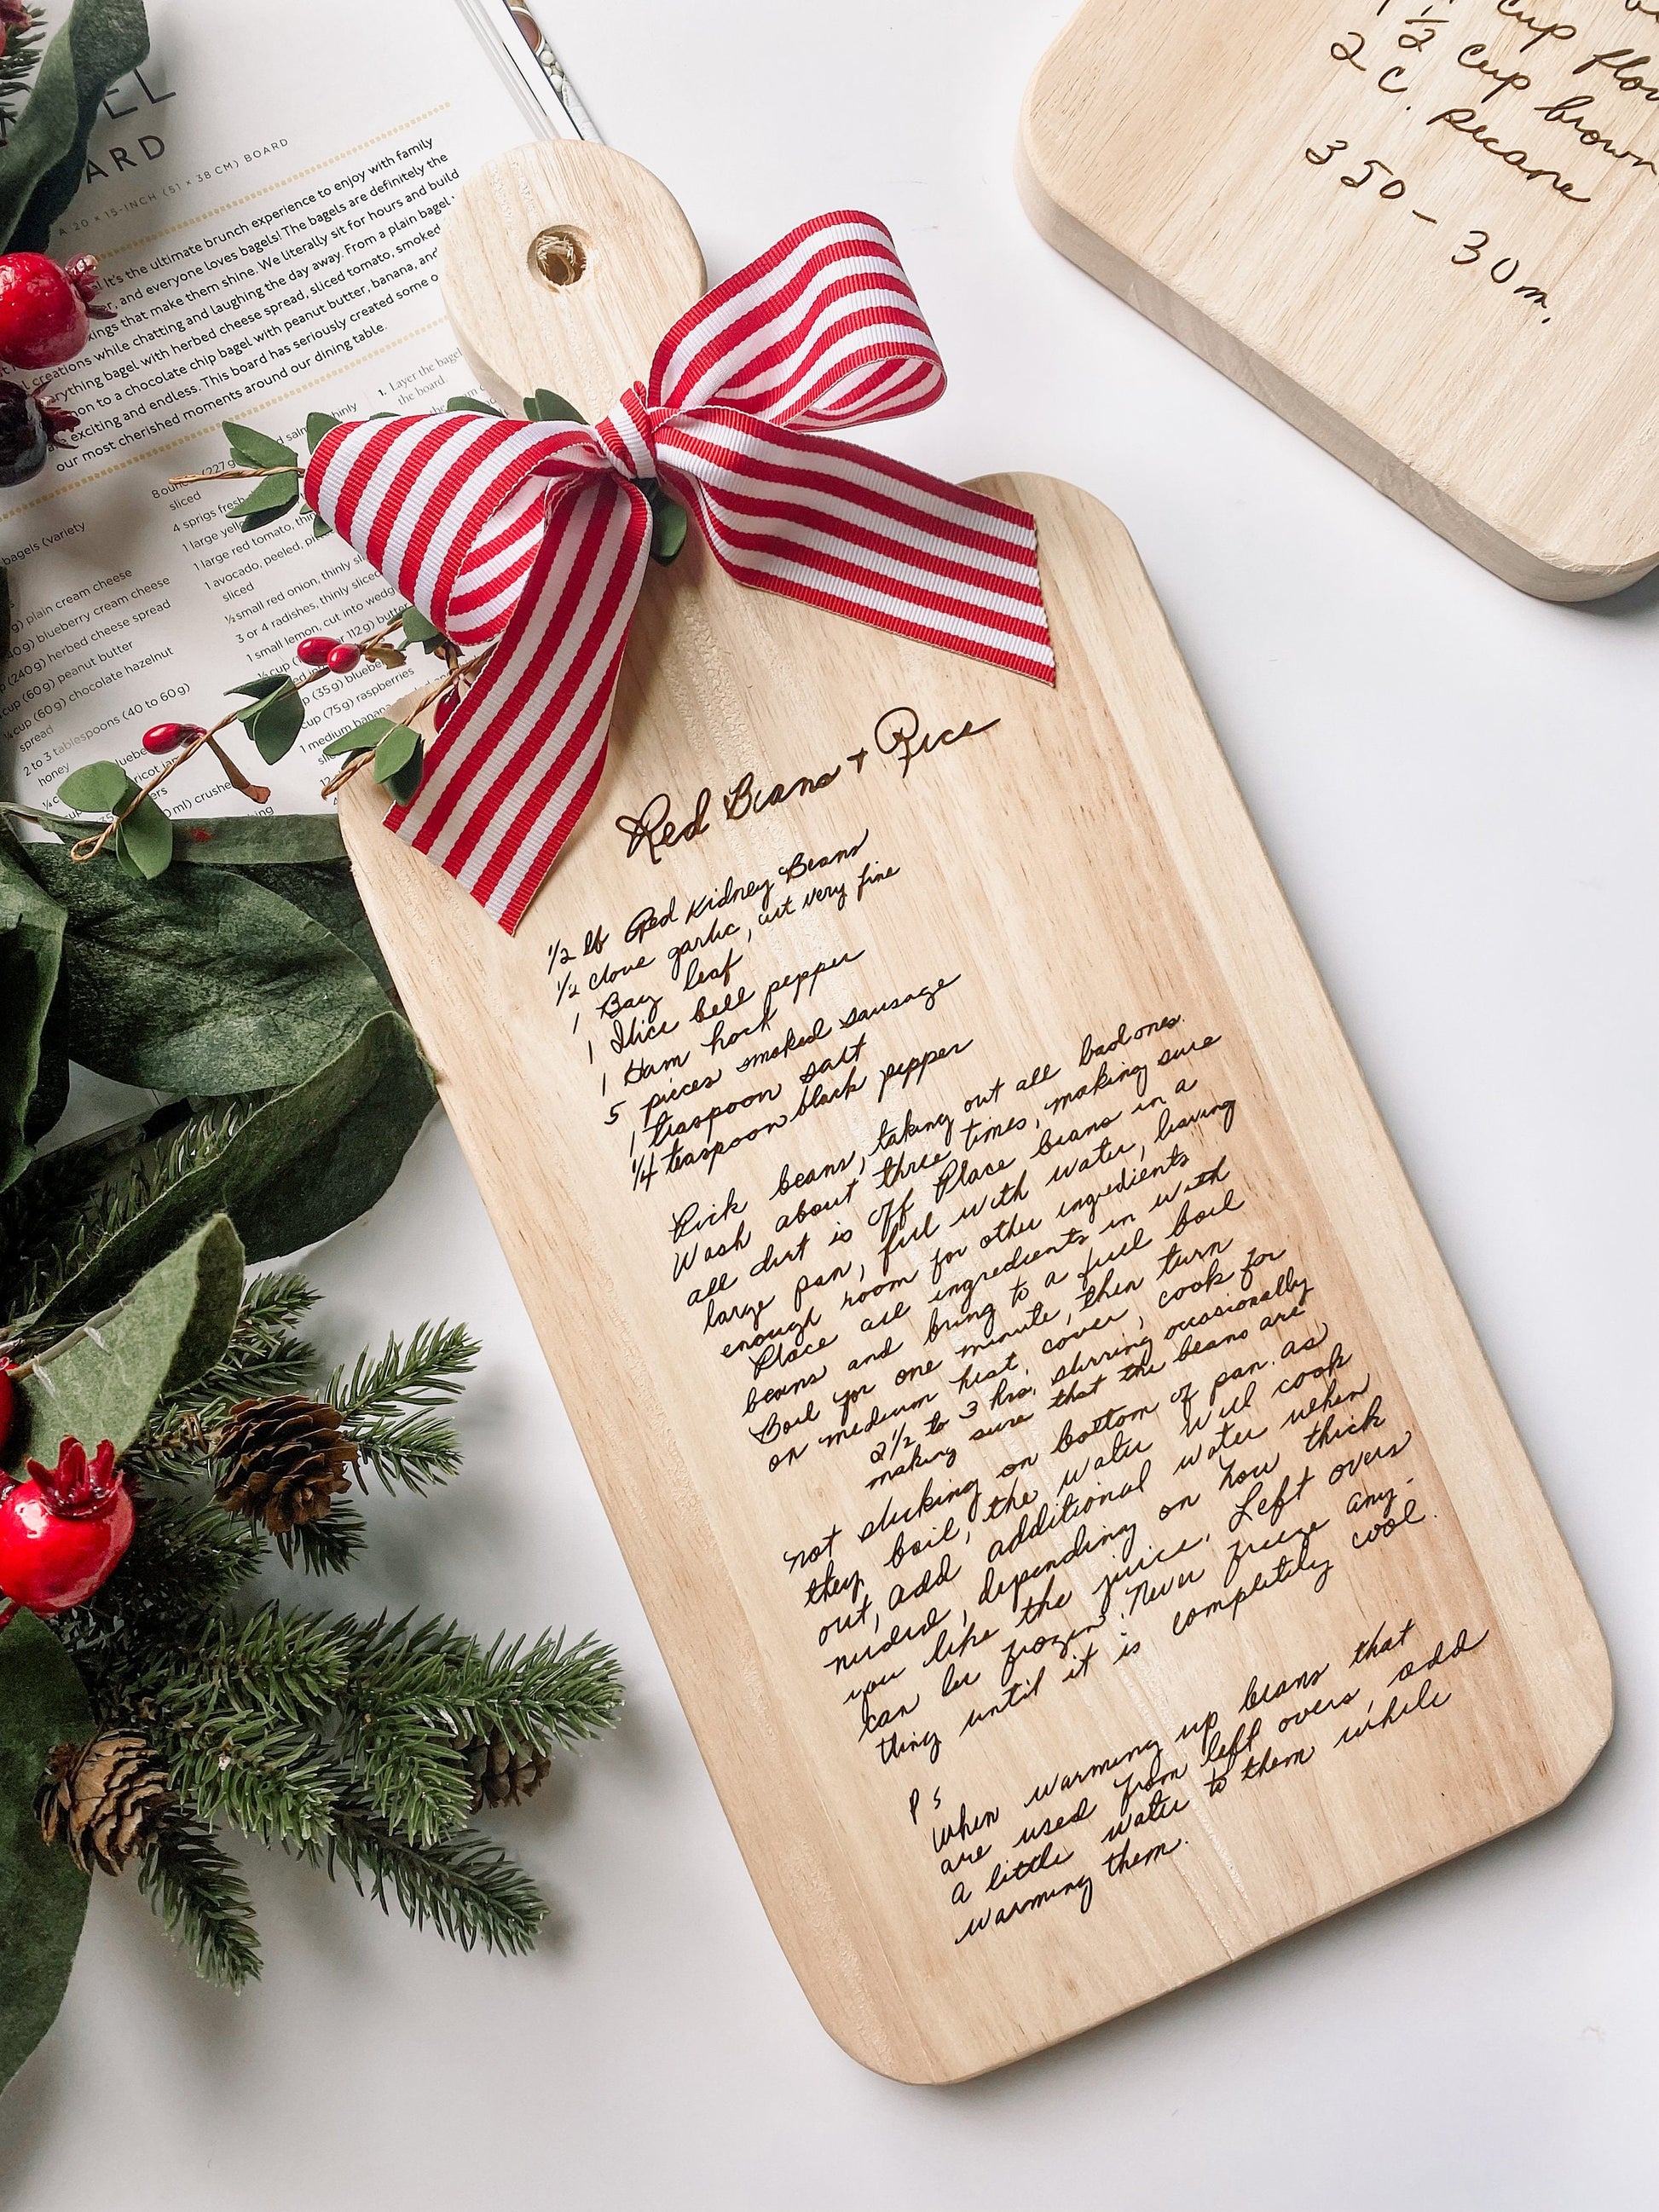 EL
ARD
A 20 × 15-INCH (51 × 38 CM) BOARD
It's the ultimate brunch experience to enjoy with family
and everyone loves bagels! The bagels are definitely the
ings that make them shine. We literally sit for hours and build
creations while chatting and laughing the day away. From a plain bagel
rything bagel with herbed cheese spread, sliced tomato, smoked
mon to a chocolate chip bagel with peanut butter, banana, and
exciting and endless. This board has seriously created some o
our most cherished moments around our dining table.
bagels (variety
plain cream cheese
blueberry cream cheese
(240 g) herbed cheese spread
(60 g) peanut butter
cup (60 g) chocolate hazelnut
spread
2 to 3 tablespoons (40 to 60 g)
honey
8 oun (227 g
sliced
4 sprigs fresh
1 large yell
1 large red tomato, thin
1 avocado, peeled, pi
sliced
½ small red onion, thinly sl
3 or 4 radishes, thinly sliced
1 small lemon, cut into wedg
112 g) butter
(35 g) bluebe
cup (75 g) raspberries
1 medium banana
1. Layer the bagel
the board.
cup flou
½ cup brown
2 c. pecans
350 - 30 m.
Red Beans + Rice
1/2 lb Red Kidney Beans
1/2 clove garlic, cut very fine
1 Bay leaf
1 Slice bell pepper
1 Ham hock
5 pieces smoked sausage
1 teaspoon salt
1/4 teaspoon black pepper
Pick beans, taking out all bad ones.
Wash about three times, making sure
all dirt is off Place beans in a
large pan, fill with water, leaving
enough room for other ingredients
Place all ingredients in with
beans and bring to a full boil
Boil for one minute, then turn
on medium heat, cover, cook for
2 1/2 to 3 hrs, stirring occasionally
making sure that the beans are
not sticking on bottom of pan. As
they boil, the water will cook
out, add additional water when
needed, depending on how thick
you like the juice. Left overs
can be frozen. Never freeze any-
thing until it is completely cool.
PS
When warming up beans that
are used from left overs, add
a little water to them while
warming them.